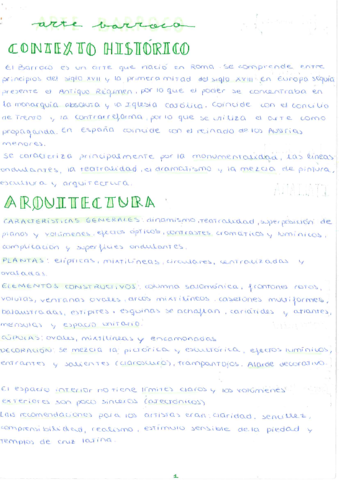 arte barroco
CONTEXTO HISTÓRICO
El Barroco es un arte que nació en Roma. Se comprende entre
principios del siglo XVII y la primera mitad del siglo XVIII en Europa seguía
presente el Antiguo Régimen, por lo que el poder se concentraba en
la monarquía absoluta y la Iglesia Católica. Coincide con el concilio
de Trento y la contrarreforma, por lo que se utiliza el arte como
propaganda. En España coincide con el reinado de los Austrias
menores.
Se caracteriza principalmente por la monumentalidad, las líneas
ondulantes, la teatralidad, el dramatismo y la mezcla de pintura,
escultura y arquitectura.
ARQUITECTURA
CARACTERÍSTICAS GENERALES: dinamismo, teatralidad, superposición de
planos y volúmenes, efectos ópticos, contrastes cromáticos y lumínicos,
complicación y superficies ondulantes.
PLANTAS: elípticas, mixtilíneas, circulares, centralizadas y
ovaladas.
ELEMENTOS CONSTRUCTIVOS: columna salomónica, frontones rotos,
volutas, ventanas ovales, arcos mixtilíneos, casetones multiformes,
balaustradas, estípites, esquinas se achaflan, cariátides y atlantes,
ménsulas y espacio unitario.
CÚPULAS: ovales, mixtilíneas y encamonadas
DECORACIÓN: se mezcla la pictórica y escultórica, efectos lumínicos,
entrantes y salientes (claroscuro), trampantojos. Alarde decorativo.
El espacio interior no tiene límites claros y los volúmenes
exteriores son poco sinceros
Las recomendaciones para los artistas eran: claridad, sencillez,
comprensibilidad, realismo, estímulo sensible de la piedad y
templos de cruz latina.
1